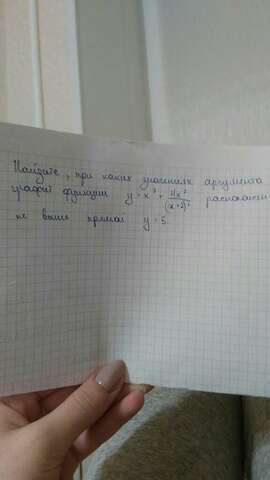 Найдите, при каких значениях аргумента
график функции y = x² + 4x²/(x+2)² расположен
не выше прямой y = 5.